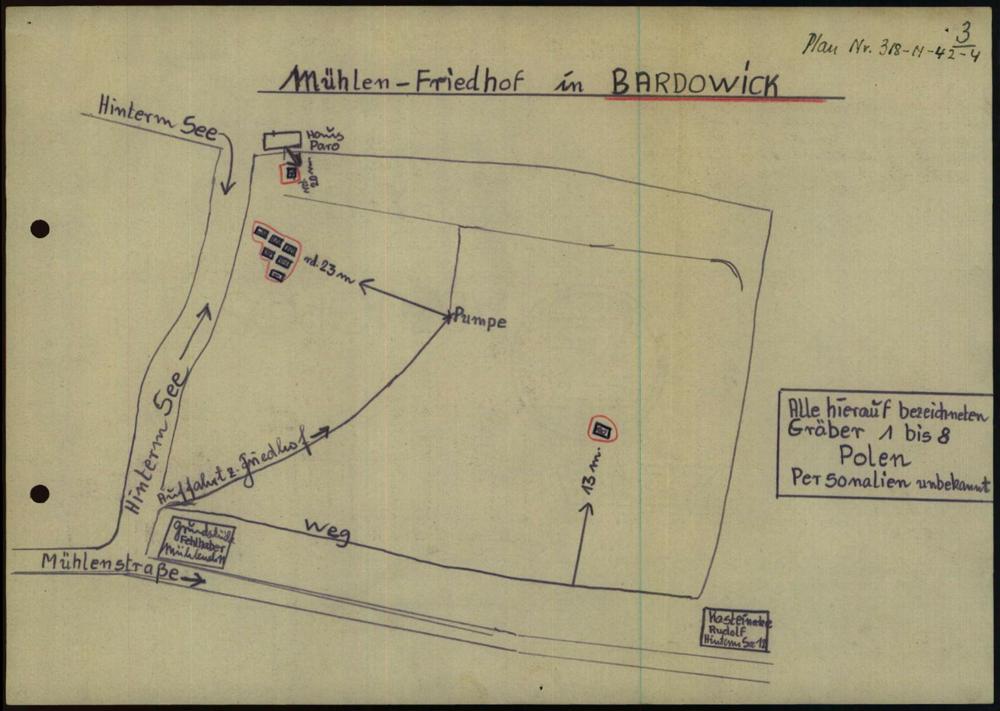 Plan Nr. 318-N-42-4
3
Mühlen-Friedhof in BARDOWICK
Hinterm See
Haus
Paro
20 m
rd. 23 m
Pumpe
Hinterm See
Auffahrt z. Friedhof
13 m.
Alle hierauf bezeichneten
Gräber 1 bis 8
Polen
Personalien unbekannt
Weg
Grundstück
Fehlhaber
Mühlenstraße
Rudolf
Hinterm See 12